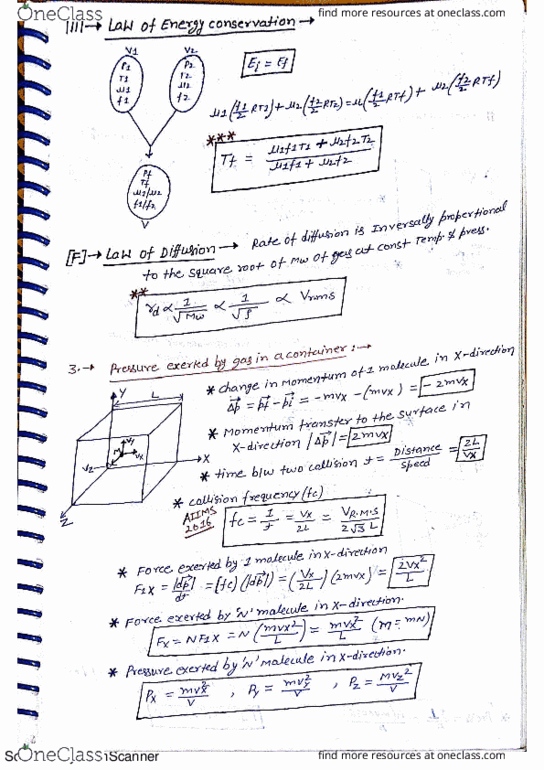 OneClass
find more resources at oneclass.com
|III|→ Law of Energy conservation →
V1 V2
P1 T1 μ1 f1
P2 T2 μ2 f2
Ei = Ef
μ1(f1/2 RT1) + μ2(f2/2 RT2) = μ1(f1/2 RTf) + μ2(f2/2 RTf)
***
Tf = μ1f1T1 + μ2f2T2 / μ1f1 + μ2f2
Pf
Tf
μ1/μ2
f1/f2
V
[F]→ Law of Diffusion → Rate of diffusion is Inversally propertional
to the square root of Mw of gas at const Temp & press.
**
rd ∝ 1/√Mw ∝ 1/√ρ ∝ Vrms
3.→ Pressure exerted by gas in a container :→
* change in momentum of 1 molecule in X-direction
Δp = pf - pi = -mvx - (mvx) = -2mvx
* Momentum transfer to the surface in
X-direction |Δp| = 2mvx
* time b/w two collision t = Distance/speed = 2L/vx
Y L X Z
vy vx vz M
* collision frequency (fc)
AIIMS 2016
fc = 1/t = vx/2L = VR.M.S/2√3 L
* Force exerted by 1 molecule in X-direction
F1x = |dp|/dt = [fc)(|dp|) = (vx/2L)(2mvx) = 2vx²/L
* Force exerted by 'N' molecule in X-direction.
Fx = NF1X = N(mvx²/L) = mvx²/L (M = mN)
* Pressure exerted by 'N' molecule in X-direction.
Px = mvx²/V , Py = mvy²/V , Pz = Mvz²/V
OneClass
Scanner
find more resources at oneclass.com